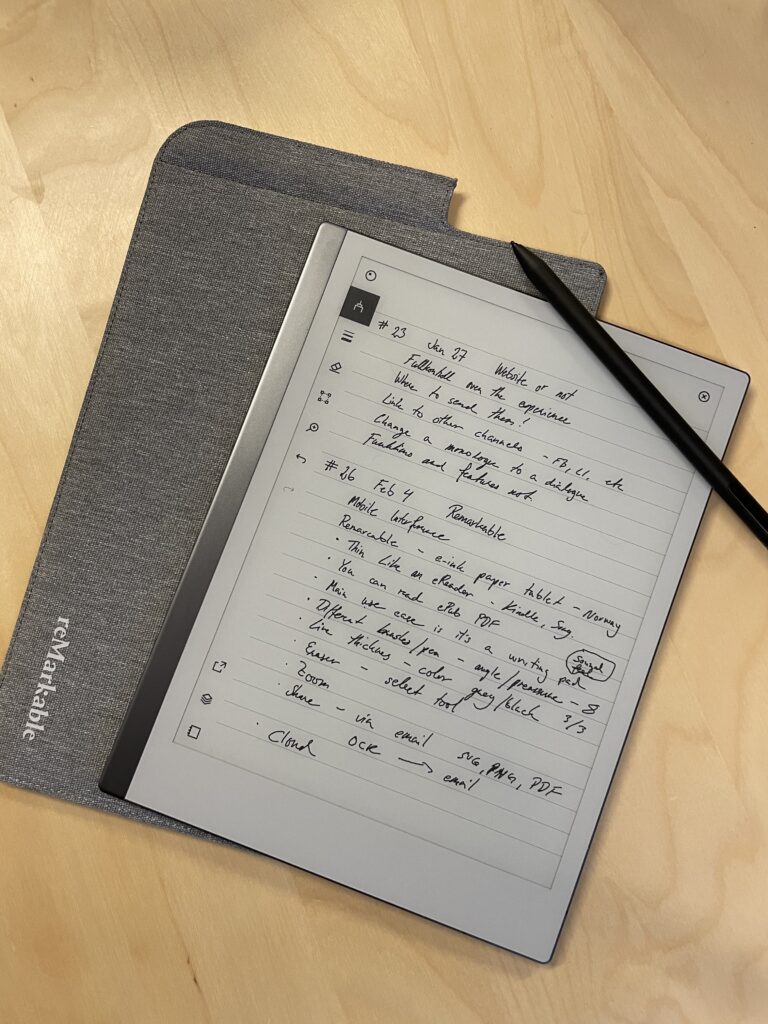 # 23 Jan 27 Website or not
over the experience
Where to send them!
Link to other channels - FB, LI. etc
Change a monologue to a dialogue
Functions and features not.
# 26 Feb 4 Remarkable
Mobile Interference
Remarcable - e-ink paper tablet - Norway
· Thin Like an eReader - Kindle, Sony
· You can read ePub PDF
· Main use case is it's a writing pad
· Different brushes/pen - angle/pressure - 8
· Line thickness - color grey/black 3/3
· Eraser - select tool
· Zoom
Share - via email SVG, PNG, PDF
OCR → email
· Cloud
reMarkable